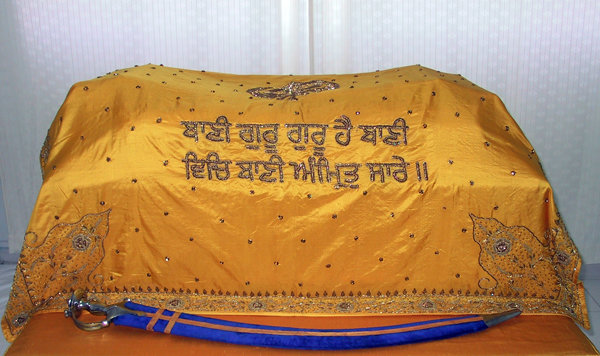 ਬਾਣੀ ਗੁਰੂ ਗੁਰੂ ਹੈ ਬਾਣੀ
ਵਿਚਿ ਬਾਣੀ ਅੰਮ੍ਰਿਤੁ ਸਾਰੇ ॥